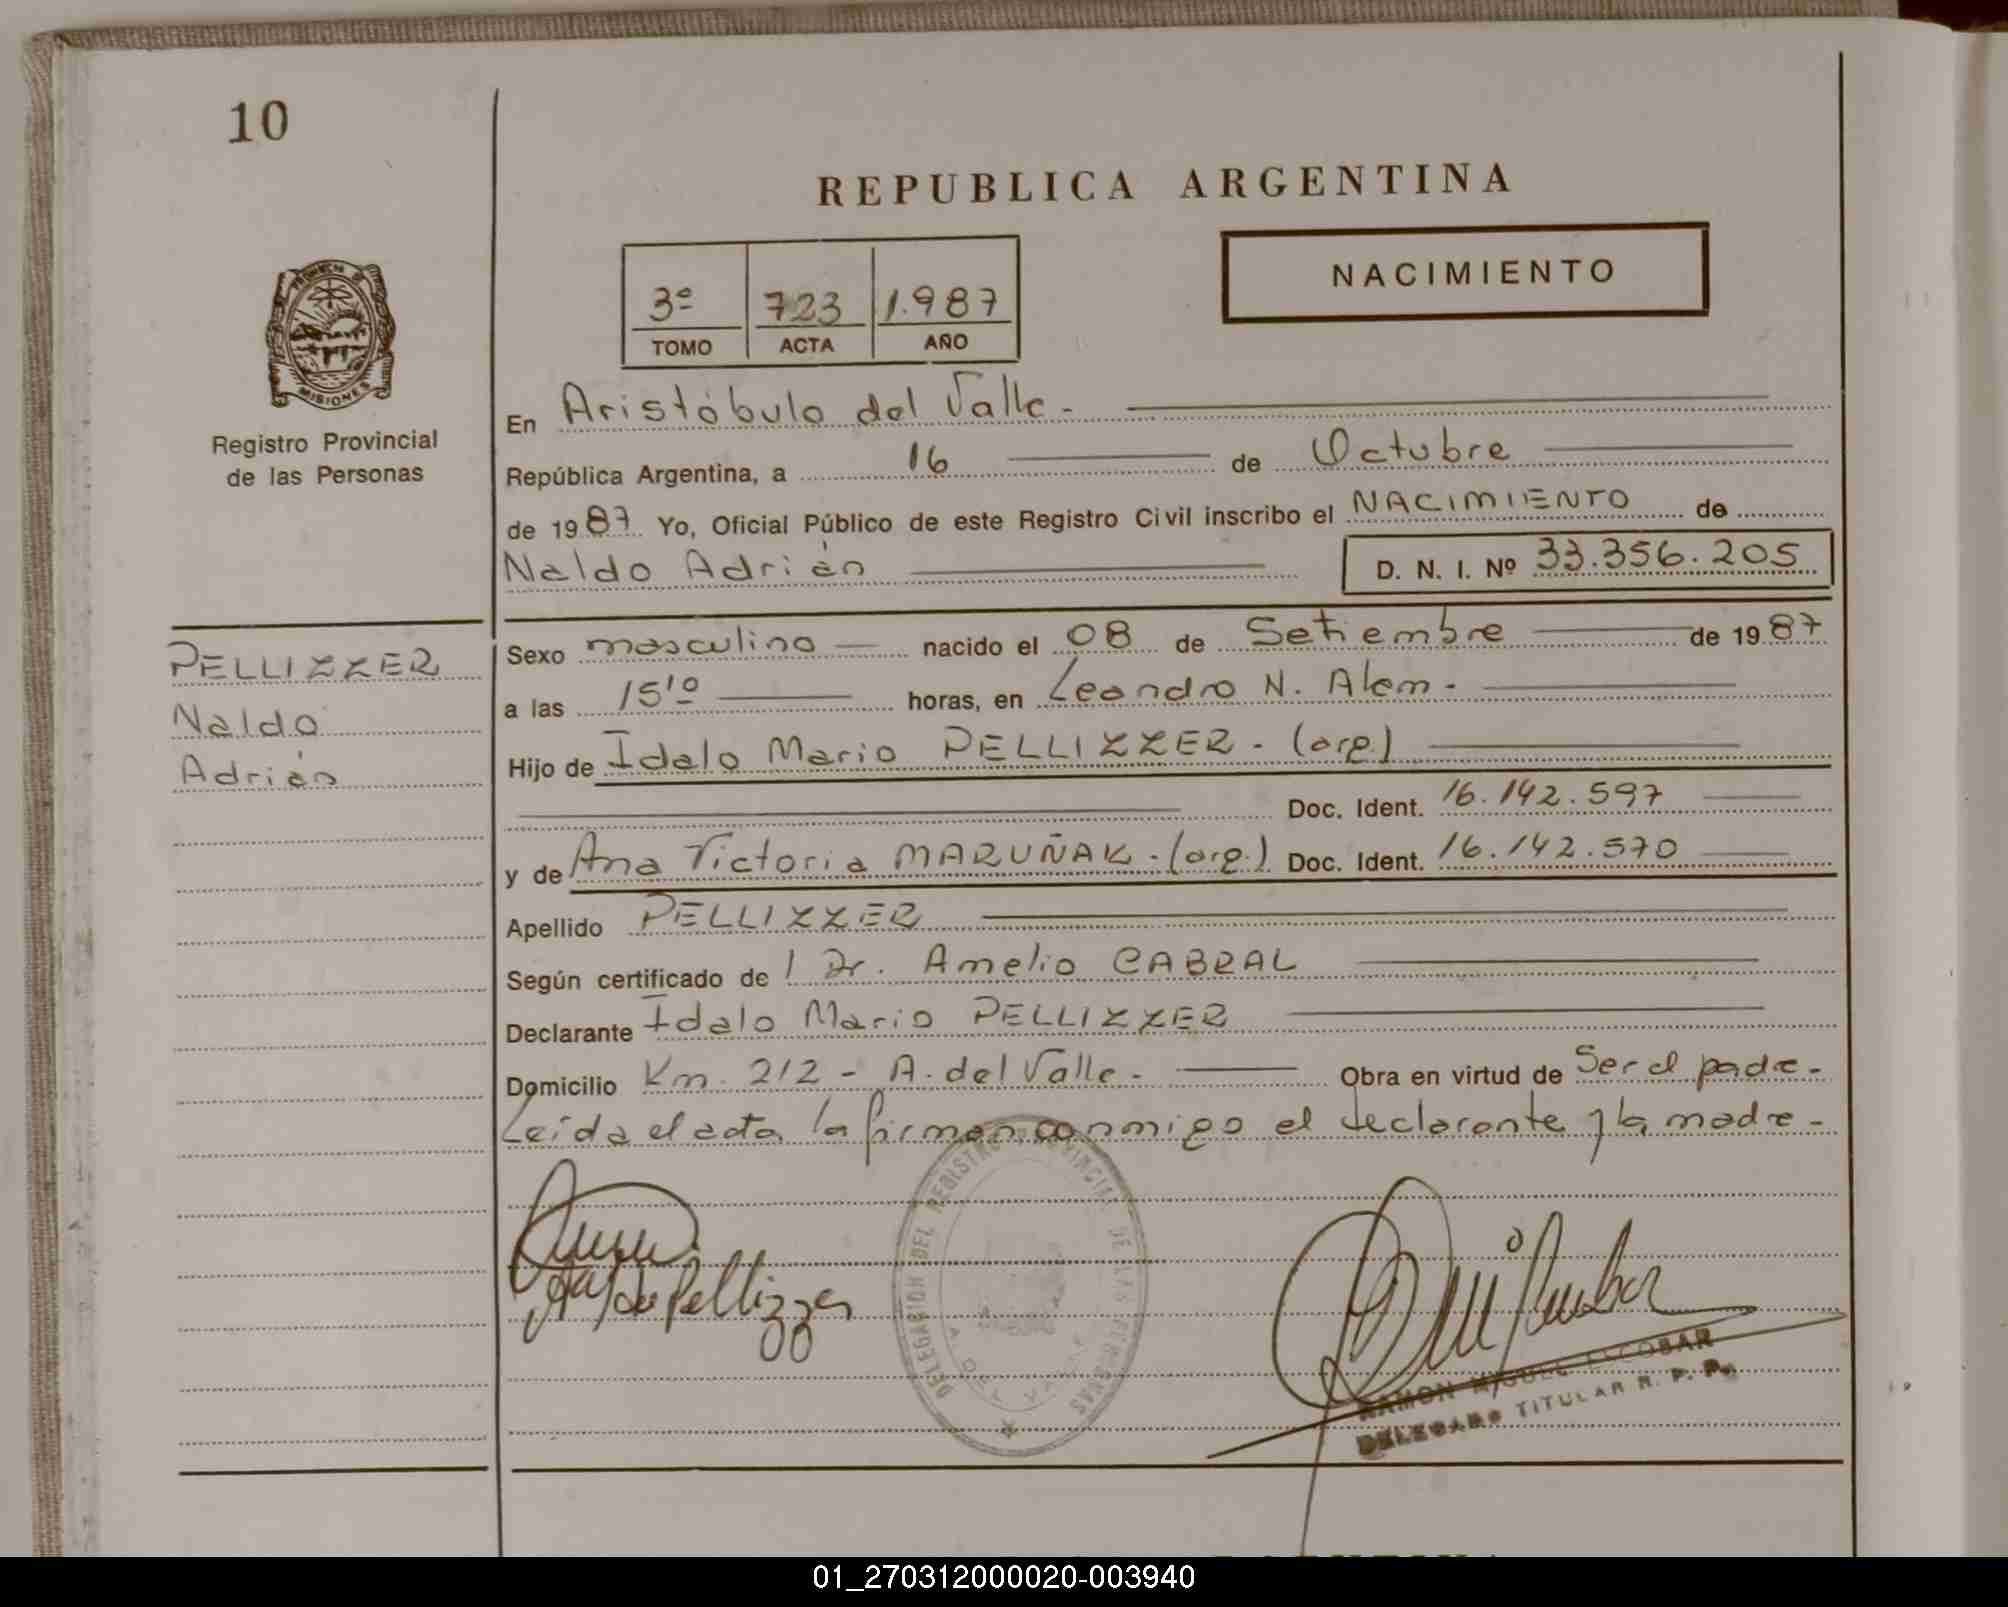 10
REPUBLICA ARGENTINA
NACIMIENTO
3º 723 1.987
TOMO ACTA AÑO
PROVINCIA DE
MISIONES
Registro Provincial
de las Personas
En Aristóbulo del Valle.-
República Argentina, a 16 de Octubre
de 1987 Yo, Oficial Público de este Registro Civil inscribo el NACIMIENTO de
Naldo Adrián D. N. I. Nº 33.356.205
PELLIZZER
Naldo
Adrián
Sexo masculino nacido el 08 de Setiembre de 1987
a las 15¹⁰ horas, en Leandro N. Alem.-
Hijo de Idalo Mario PELLIZZER.- (arg.)
Doc. Ident. 16.142.597
y de Ana Victoria MARUÑAK.-(arg.) Doc. Ident. 16.142.570
Apellido PELLIZZER
Según certificado de / Dr. Amelio CABRAL
Declarante Idalo Mario PELLIZZER
Domicilio Km. 212 - A. del Valle.- Obra en virtud de Ser el padre.-
Leída el acta, la firman conmigo el declarante y la madre.-
DELEGACION DEL REGISTRO PROVINCIAL DE LAS PERSONAS
de Pellizzer
RAMON MIGUEL ESCOBAR
DELEGADO TITULAR R. P. P.
01_270312000020-003940